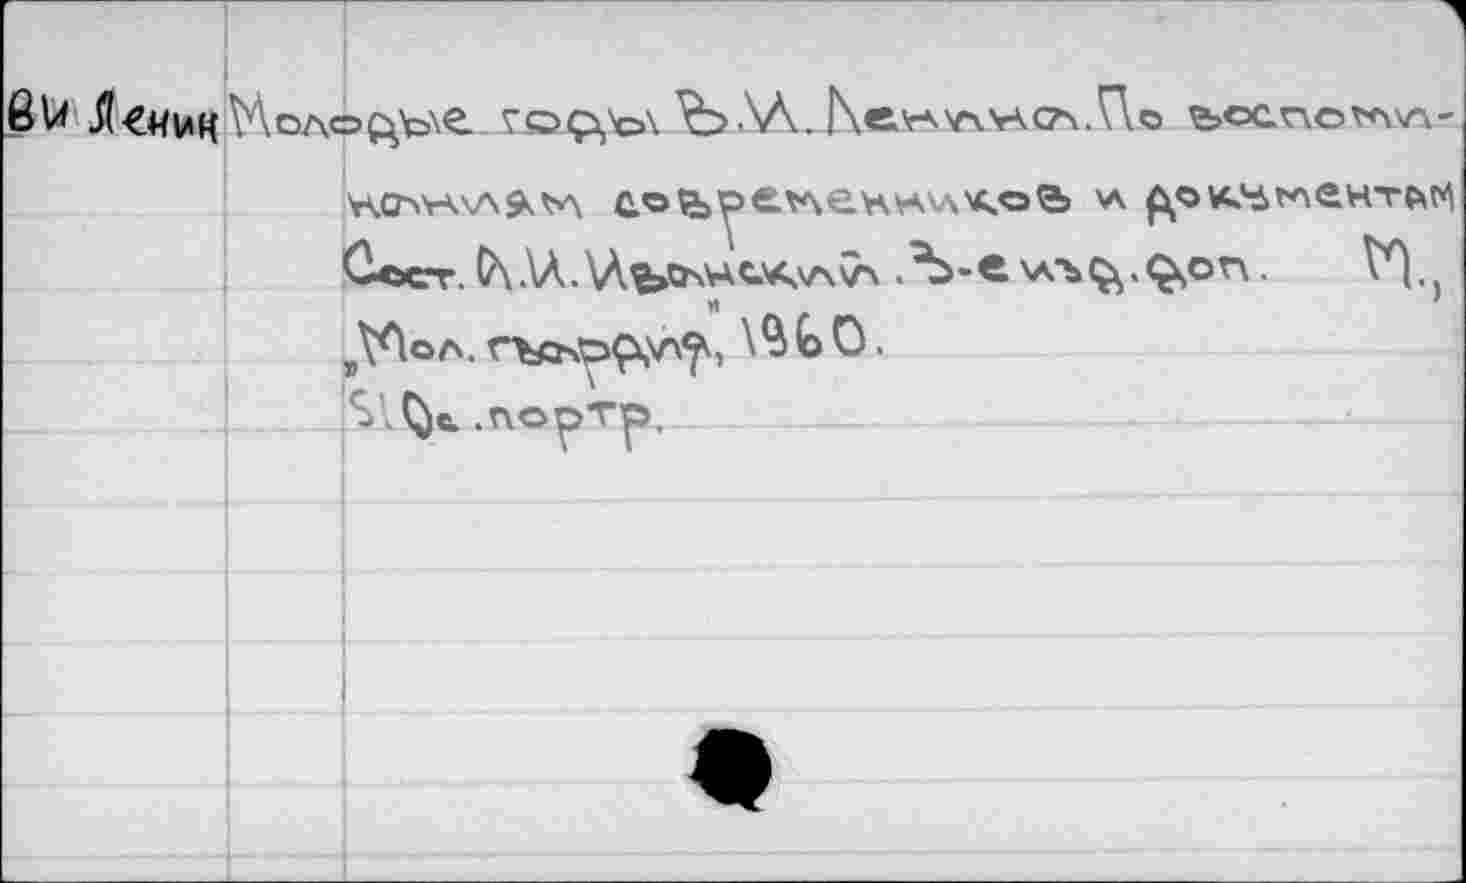 ВИ Ленин Молодые годы В.И. Ленина. По воспоми-
наниям современников и документам
Сост. А.И. Иванский. 3-е изд. доп. М.,
„Мол. гвардия", 1960.
с. портр.